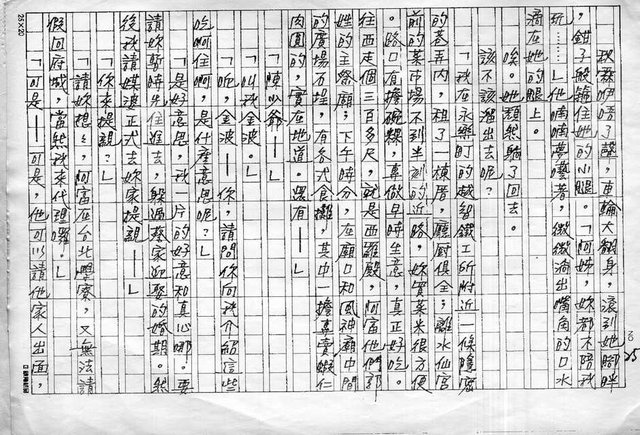 秋霖伊唔了聲,車輪大翻身,滾到她腳畔
,鉗子般箍住她的小腿。「阿姊,妳都不陪我
玩……」他喃喃夢囈著,微微淌出嘴角的口水
滴在她的腿上。
唉。她頹然躺了回去。
該不該溜出去呢?
「我在永樂町的越智鐵工所附近一條隱密
的巷弄內,租了一棟厝,廳厨俱全;離水仙宮
前的菜市場不到半刻的近路,妳買菜米很方便
。路口有擔碗粿,專做早時生意,真正好吃。
往西走個三百多尺,就是西羅殿,阿富他們郭
姓的主祭廟;下午時分,在廟口和風神廟中間
的廣場石埕,有各式食攤,其中一擔專賣蝦仁
肉圓的,實在地道。還有——」
「陳少爺——」
「叫我金波。」
「听,金波——你,請問你向我介紹這些
吃啊住啊,是什麼意思呢?」
「是好意思,我一片的好意和真心哪。要
請妳暫時先住進去,躲過蔡家迎娶的婚期。然
後我請媒婆正式去妳家提親——」
「你來提親?」
「請妳想想,阿富在台北學寮,又無法請
假回府城,當然我來代理囉。」
「可是——可是,他可以請他家人出面,
25
25×20